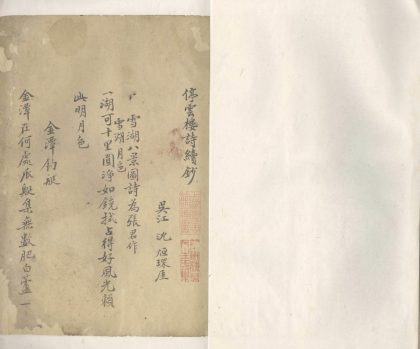 停雲樓詩續鈔
吳江 沈烜琛厓
雪湖八景圖詩為張君作
雪湖月色
一湖可十里圓淨如鏡拭占得好風光賴
此明月色
金潭釣艇
金潭在何處艇集無數肥白一